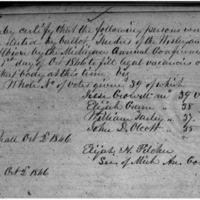 by certify that the following persons were
elected by ballot, Trustees of the Wesleyan
Albion by the Michigan Annual Conference
1st day of Oct 1846 to fill legal vacancies
that body at this time, viz
Whole No of votes given 39 of which
Jesse Crowell rec 39 V
Elijah Crane " 38
William " 37
John D. Olcott " 35
Oct 2d 1846
Elijah H. Pilcher
Sec. of Mich An. Con
Oct 2d 1846